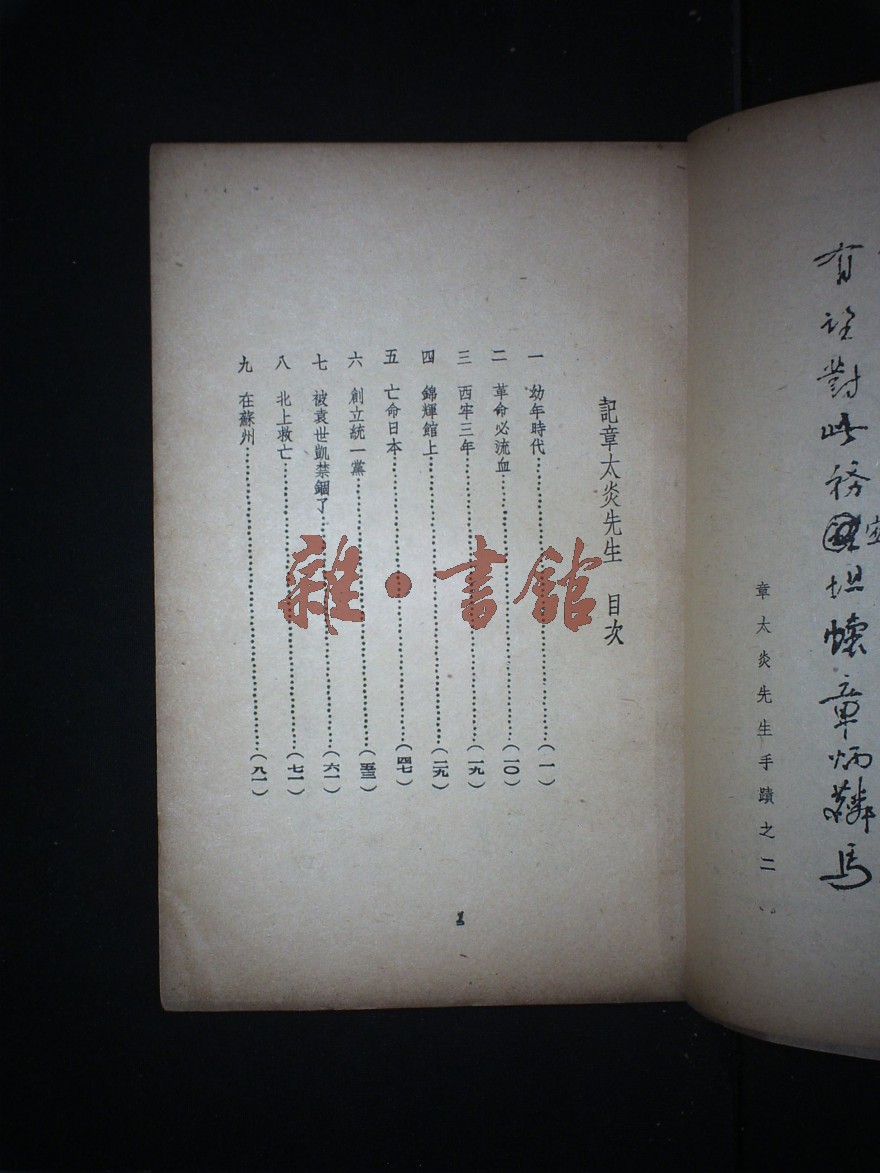 有
對此務
坦懷章炳麟
章太炎先生手蹟之二
記章太炎先生 目次
一 幼年時代……(一)
二 革命必流血……(一〇)
三 西牢三年……(一九)
四 錦輝館上……(二九)
五 亡命日本……(四七)
六 創立統一黨……(五三)
七 被袁世凱禁錮了……(六一)
八 北上救亡……(七一)
九 在蘇州……(八一)
雜·書館